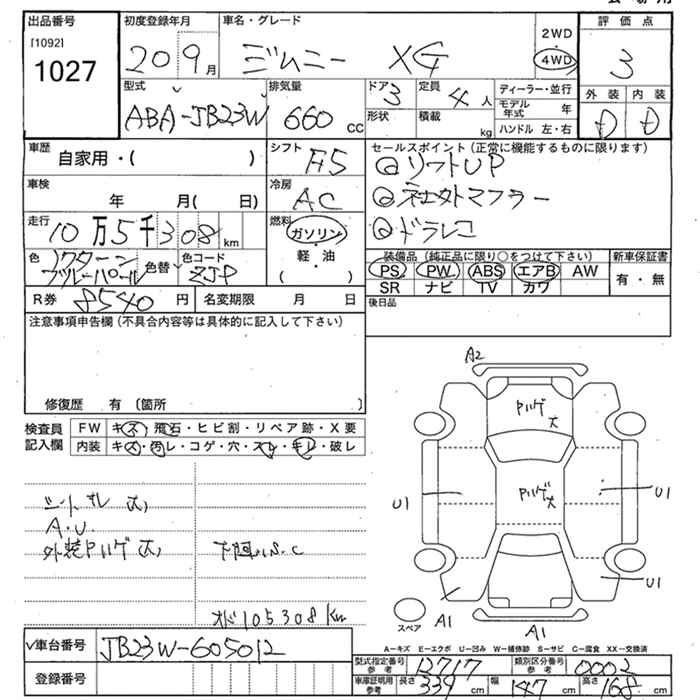 出品番号 初度登録年月 車名・グレード 評価点
[1092]
1027
20 9月 ジムニー XG 2WD 4WD 3
型式 排気量 ドア 定員 ディーラー・並行 外装 内装
ABA-JB23W 660 cc 3 4人 モデル年式 年 D D
形状 積載 kg ハンドル 左・右
車歴 自家用・( ) シフト セールスポイント (正常に機能するものに限ります)
リフトUP
車検 年 月( 日) 冷房 AC 社外マフラー
ドラレコ
走行 10万5千308km 燃料 ガソリン
軽・油
( )
色 色替 色コード ZJP
装備品 (純正品に限り○をつけて下さい) 新車保証書
PS PW ABS エアB AW 有・無
SR ナビ TV カワ
R券 8540円 名変期限 月 日 後日品
注意事項申告欄 (不具合内容等は具体的に記入して下さい)
修復歴 有 〔箇所 〕
検査員記入欄 FW キズ・飛石・ヒビ割・リペア跡・X要
内装 キズ・汚レ・コゲ・穴・スレ・キレ・破レ
A2
U1
U1
U1
A1
A1
スペア
シートスレ 大
A.U.
外装
オド105308km
A―キズ E―エクボ U―凹み W―補修跡 S―サビ C―腐食 XX―交換済
√車台番号 JB23W-605012
型式指定番号 参考 12717 類別区分番号 参考 0002
登録番号
車庫証明用 参考 長さ 339 cm 幅 147 cm 高さ 168 cm